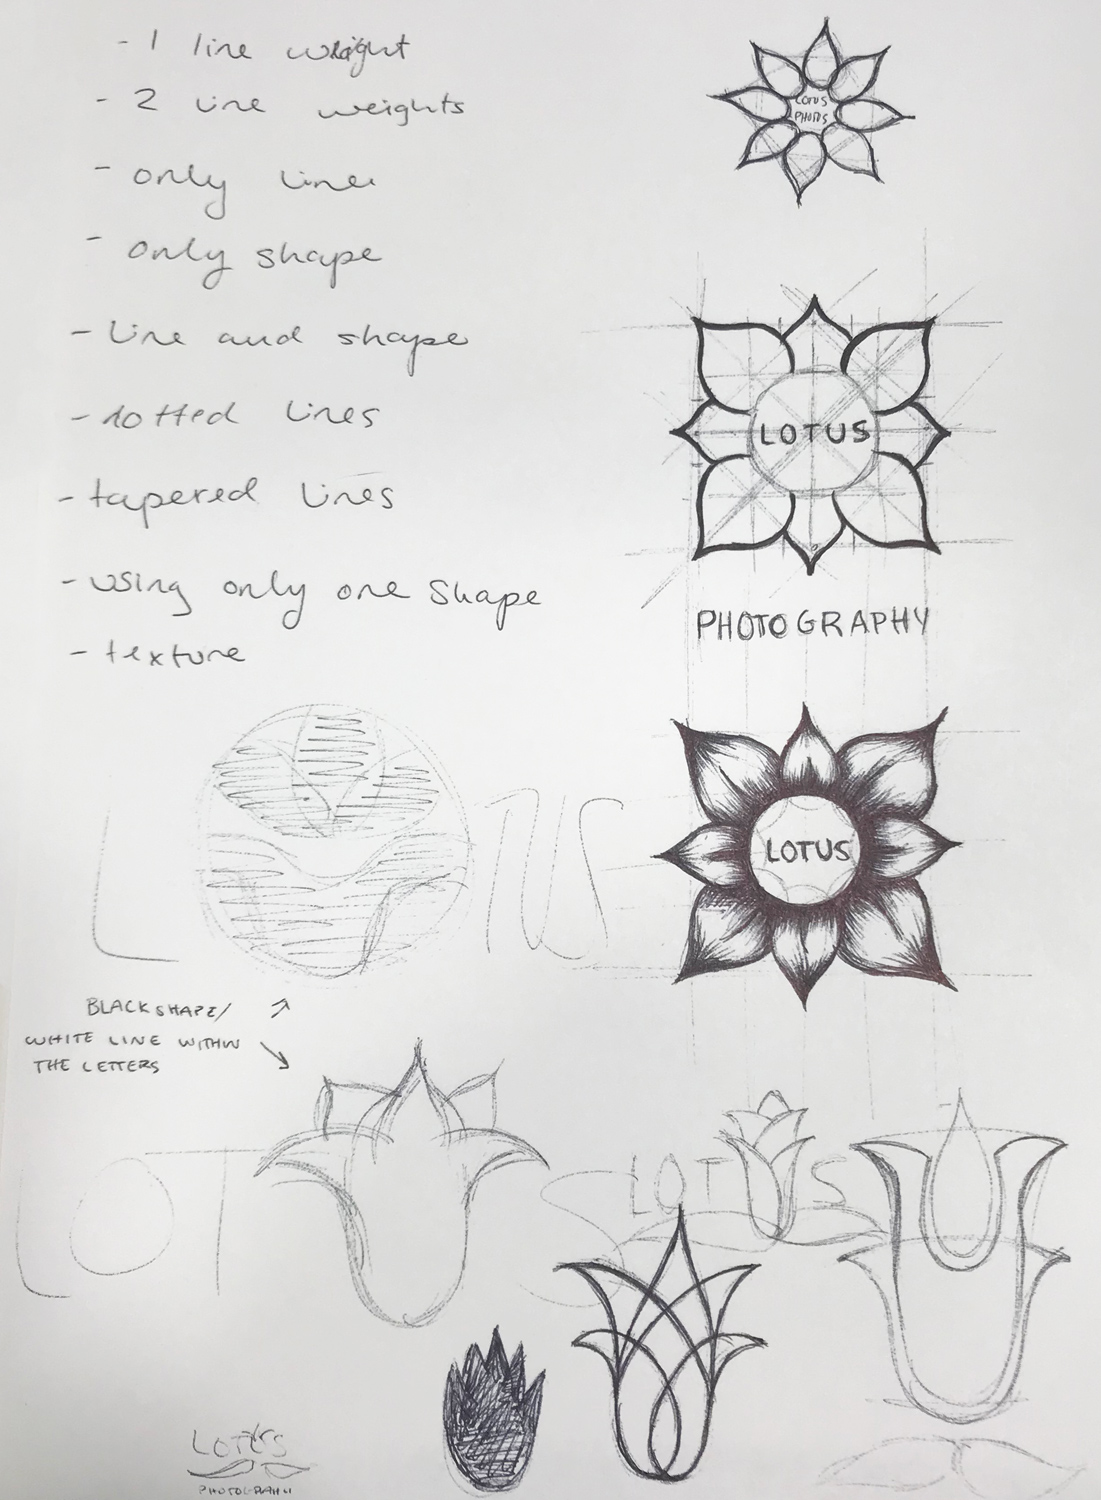 - 1 line weight
- 2 line weights
- only line
- only shape
- line and shape
- dotted lines
- tapered lines
- using only one shape
- texture
LOTUS
PHOTOS
LOTUS
PHOTOGRAPHY
LOTUS
LOTUS
BLACK SHAPE/
WHITE LINE WITHIN
THE LETTERS
LOT S
LOTUS
LOTUS
PHOTOGRAPHY